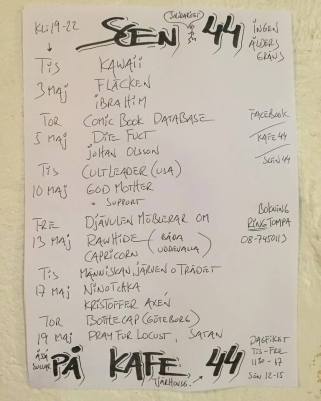 KL: 19-22
SCEN 44
INGEN
ÅLDERS
GRÄNS
TIS KAWAII
3 MAJ FLÄCKEN
IBRAHIM
TOR COMIC BOOK DATABASE
5 MAJ DITE FUCT
JOHAN OLSSON
FACEBOOK
/KAFE44
/SCEN44
TIS CULT LEADER (USA)
10 MAJ GOD MOTHER
+ SUPPORT
FRE DJÄVULEN MÖBLERAR OM
13 MAJ RAWHIDE (BÅDA
CAPRICORN UDDEVALLA)
BOKNING
RING TOMPA
TIS MÄNNISKAN, JÄRVEN O TRÄDET
17 MAJ NINOTCHKA
KRISTOFFER AXÉN
TOR BOTTLECAP (GÖTEBORG)
19 MAJ PRAY FOR LOCUST, SATAN
PÅ KAFE 44
DAGFIKET
TIS-FRE
1130-17
SÖN 12-15